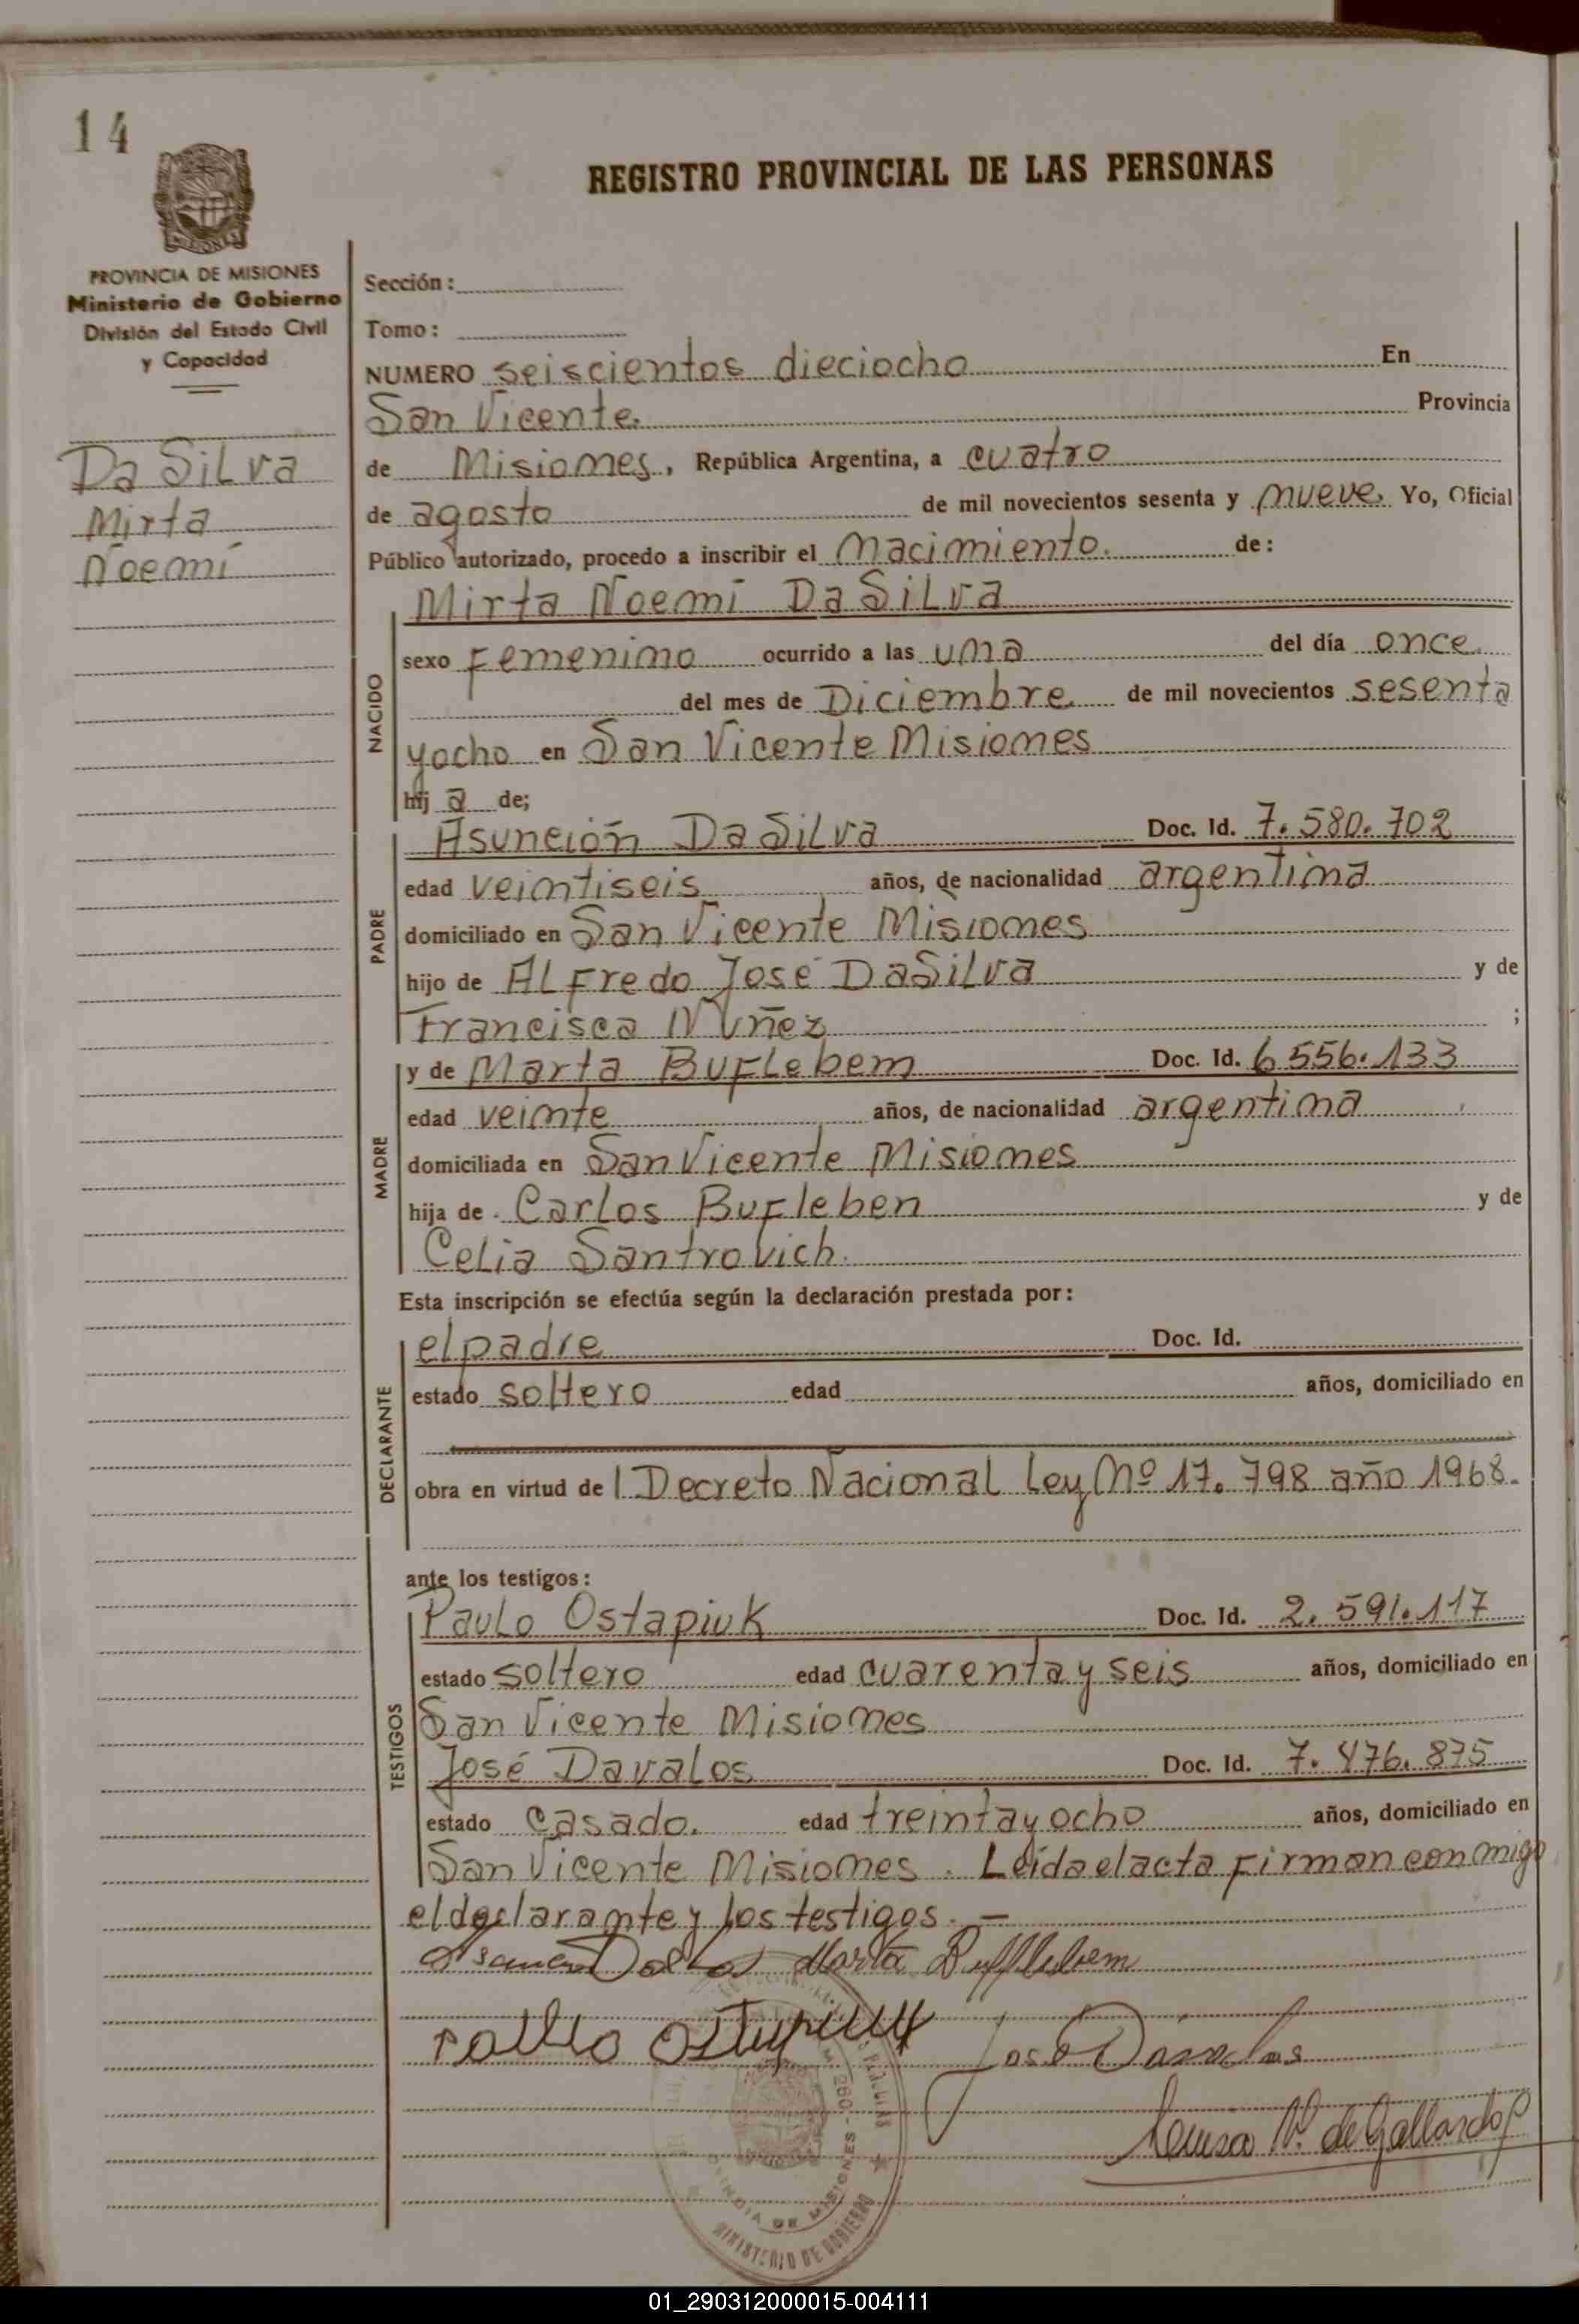 14
REGISTRO PROVINCIAL DE LAS PERSONAS
PROVINCIA DE MISIONES
Ministerio de Gobierno
División del Estado Civil
y Capacidad
Da Silva
Mirta
Noemí
Sección:
Tomo:
NUMERO seiscientos dieciocho En
San Vicente. Provincia
de Misiones, República Argentina, a cuatro
de agosto de mil novecientos sesenta y nueve. Yo, Oficial
Público autorizado, procedo a inscribir el nacimiento. de:
NACIDO
Mirta Noemí Da Silva
sexo Femenino ocurrido a las una del día once
del mes de Diciembre de mil novecientos sesenta
yocho en San Vicente Misiones
hij a de;
PADRE
Asunción Da Silva Doc. Id. 7.580.702
edad veintiseis años, de nacionalidad argentina
domiciliado en San Vicente Misiones
hijo de Alfredo José Da Silva y de
Francisca Nuñez ;
MADRE
y de Marta Buflebem Doc. Id. 6556.133
edad veinte años, de nacionalidad argentina
domiciliada en San Vicente Misiones
hija de Carlos Bufleben y de
Celia Santrovich.
Esta inscripción se efectúa según la declaración prestada por:
DECLARANTE
el padre Doc. Id.
estado soltero edad años, domiciliado en
obra en virtud de l Decreto Nacional Ley Nº 17.798 año 1968.
ante los testigos:
TESTIGOS
Paulo Ostapiuk Doc. Id. 2.591.117
estado soltero edad cuarenta y seis años, domiciliado en
San Vicente Misiones
José Davalos Doc. Id. 7.476.875
estado casado. edad treinta y ocho años, domiciliado en
San Vicente Misiones. Leída el acta firman conmigo
el declarante y los testigos. —
Marta Bufflebem
Jose Davalos
Luisa N. de Gallardo
MINISTERIO DE GOBIERNO
01_290312000015-004111